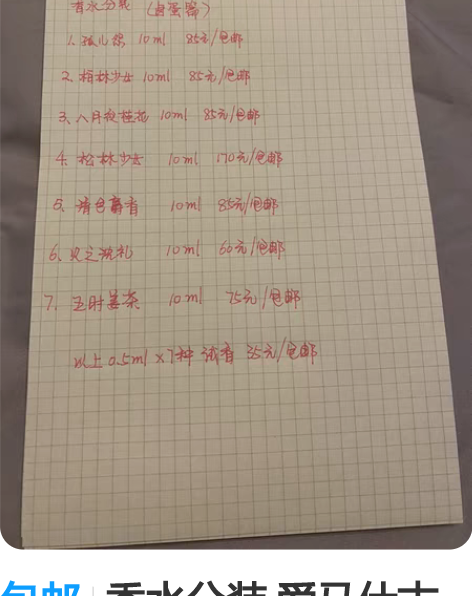 香水分装
1. 孤儿怨 10ml 85元/包邮
2. 柏林少女 10ml 85元/包邮
3. 八月夜桂花 10ml 85元/包邮
4. 松林少女 10ml 170元/包邮
5. 10ml 85元/包邮
6. 10ml 60元/包邮
7. 10ml 75元/包邮
以上 0.5ml ×7种 试香 35元/包邮
包邮 香水分装 爱马仕